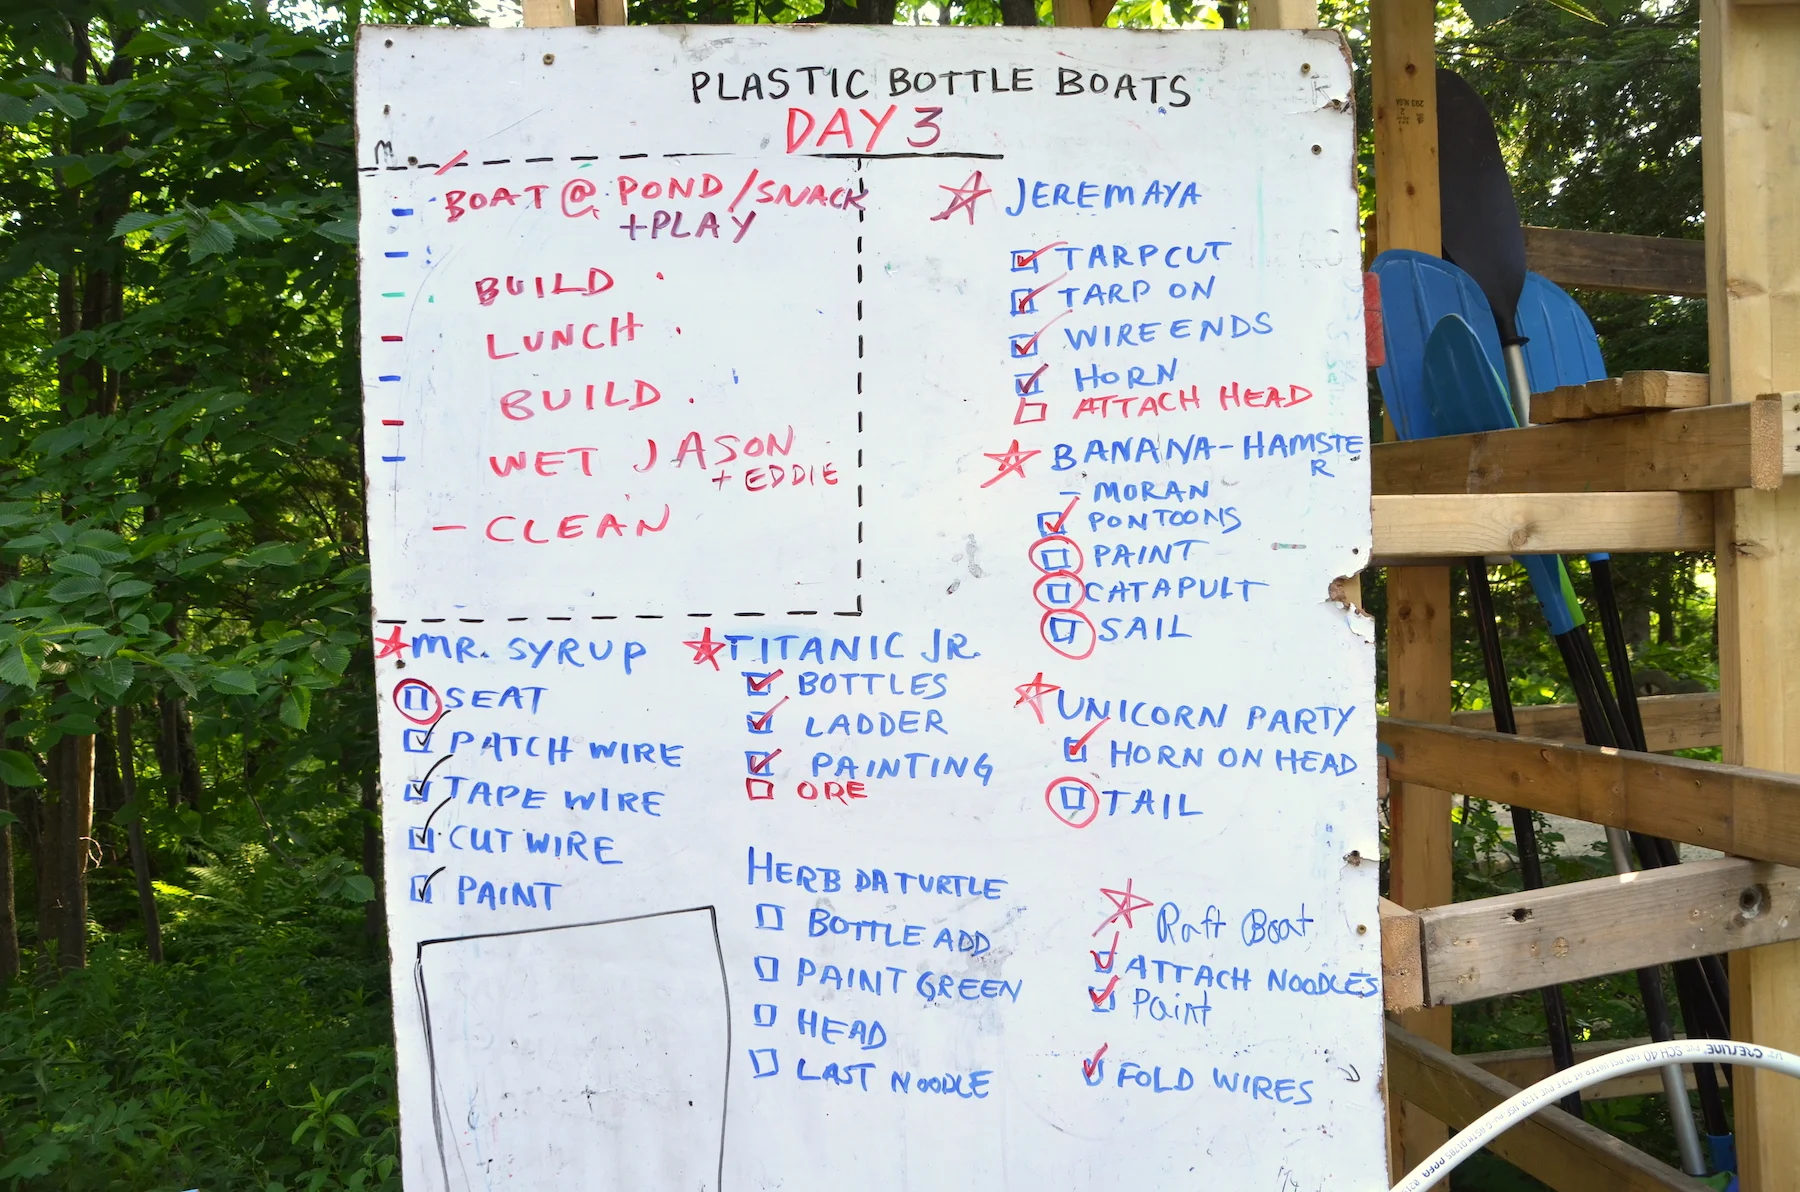 PLASTIC BOTTLE BOATS
DAY 3
BOAT @ POND/SNACK
+PLAY
BUILD
LUNCH
BUILD
WET JASON
+ EDDIE
- CLEAN
JEREMAYA
TARP CUT
TARP ON
WIRE ENDS
HORN
ATTACH HEAD
BANANA-HAMSTE
R
- MORAN
PONTOONS
PAINT
CATAPULT
SAIL
MR. SYRUP
SEAT
PATCH WIRE
TAPE WIRE
CUT WIRE
PAINT
TITANIC JR.
BOTTLES
LADDER
PAINTING
ORE
UNICORN PARTY
HORN ON HEAD
TAIL
HERB DA TURTLE
BOTTLE ADD
PAINT GREEN
HEAD
LAST NOODLE
Raft Boat
ATTACH NOODLES
Paint
FOLD WIRES